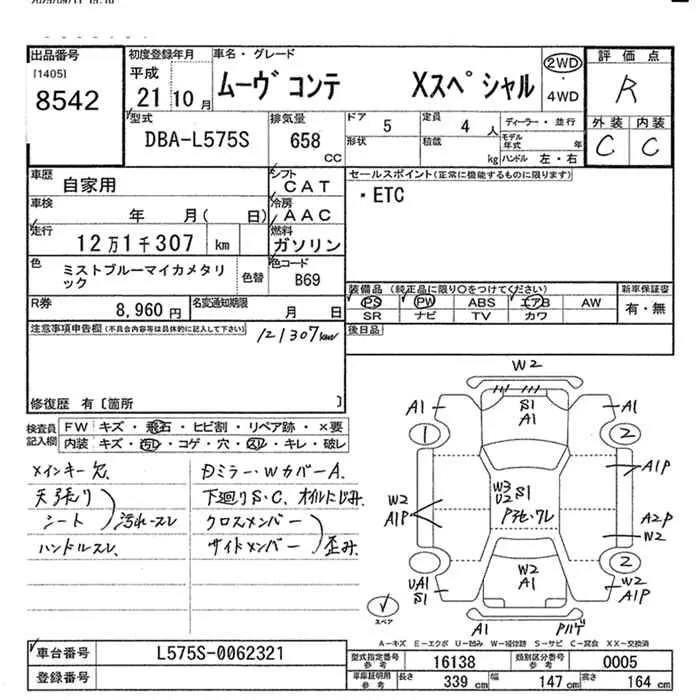 出品番号
[1405]
8542
初度登録年月
平成
21 10 月
車名・グレード
ムーヴ コンテ Xスペシャル
2WD
・
4WD
評価点
R
外装 内装
C C
型式
DBA-L575S
排気量
658
CC
ドア
5
定員
4 人
形状
積載
kg
ディーラー・並行
モデル
年式 年
ハンドル 左・右
車歴
自家用
シフト
CAT
セールスポイント(正常に機能するものに限ります)
・ETC
車検
年 月( 日)
冷房
AAC
走行
12万1千307 km
燃料
ガソリン
色
ミストブルーマイカメタリ
ック
色替
色コード
B69
装備品 (純正品に限り○をつけてください)
PS PW ABS エアB AW
SR ナビ TV カワ
新車保証書
有・無
R券
8,960 円
名変通知期限
月 日
後日品
注意事項申告欄(不具合内容等は具体的に記入して下さい)
121307km
修復歴 有〔箇所 〕
検査員
記入欄
FW キズ・飛石・ヒビ割・リペア跡・×要
内装 キズ・汚れ・コゲ・穴・スレ・キレ・破レ
メインキー欠
天張り
シート 汚れ・スレ
ハンドルスレ
Dミラー・WカバーA.
下廻りS・C、オイルにじみ
クロスメンバー
サイドメンバー 歪み
W2
A1
S1
A1
A1
1
2
W3
U2 S1
W2
A1P
A1P
A2P
W2
2
UA1
S1
W2
A1
W2
A1P
スペア
A1
A-キズ E-エクボ U-凹み W-補修跡 S-サビ C-腐食 XX-交換済
車台番号
L575S-0062321
登録番号
型式指定番号
参考
16138
類別区分番号
参考
0005
車庫証明用
参考
長さ
339 cm
幅
147 cm
高さ
164 cm